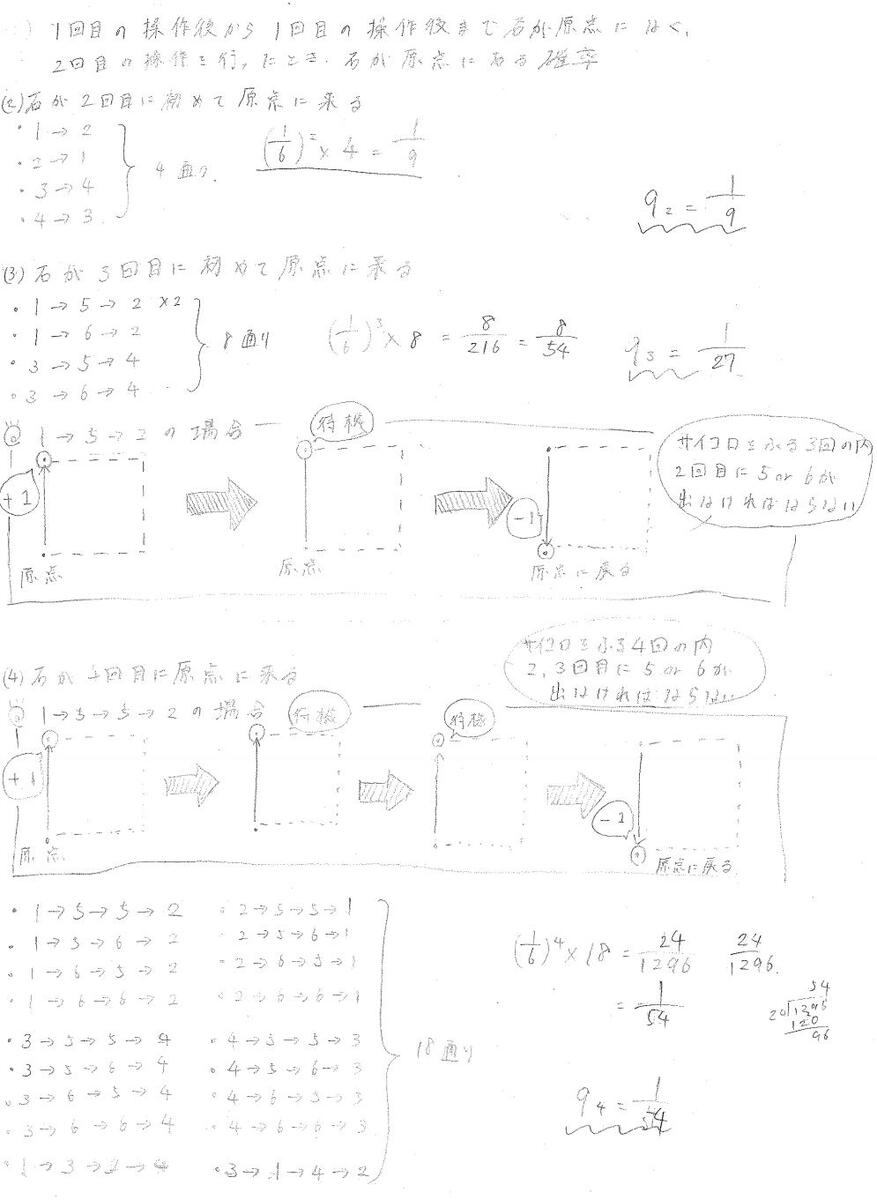 1回目の操作後から1回目の操作後まで石が原点になく、
2回目の操作を行ったとき、石が原点にある確率
(2)石が2回目に初めて原点に来る
・1→2
・2→1
・3→4
・4→3
4通り
(1/6)^2×4=1/9
q2=1/9
(3)石が3回目に初めて原点に来る
・1→5→2 ×2
・1→6→2
・3→5→4
・3→6→4
8通り
(1/6)^3×8=8/216=8/54
q3=1/27
1→5→2の場合
待機
+1
-1
原点
原点
原点に戻る
サイコロをふる3回の内
2回目に5or6が
出なければならない
(4)石が4回目に原点に来る
サイコロをふる4回の内
2,3回目に5or6が
出なければならない
1→5→5→2の場合
待機
待機
+1
-1
原点
原点に戻る
・1→5→5→2
・1→5→6→2
・1→6→5→2
・1→6→6→2
・2→5→5→1
・2→5→6→1
・2→6→5→1
・2→6→6→1
・3→5→5→4
・3→5→6→4
・3→6→5→4
・3→6→6→4
・4→5→5→3
・4→5→6→3
・4→6→5→3
・4→6→6→3
・3→1→4→2
18通り
(1/6)^4×18=24/1296
24/1296
=1/54
54
120
96
q4=1/54